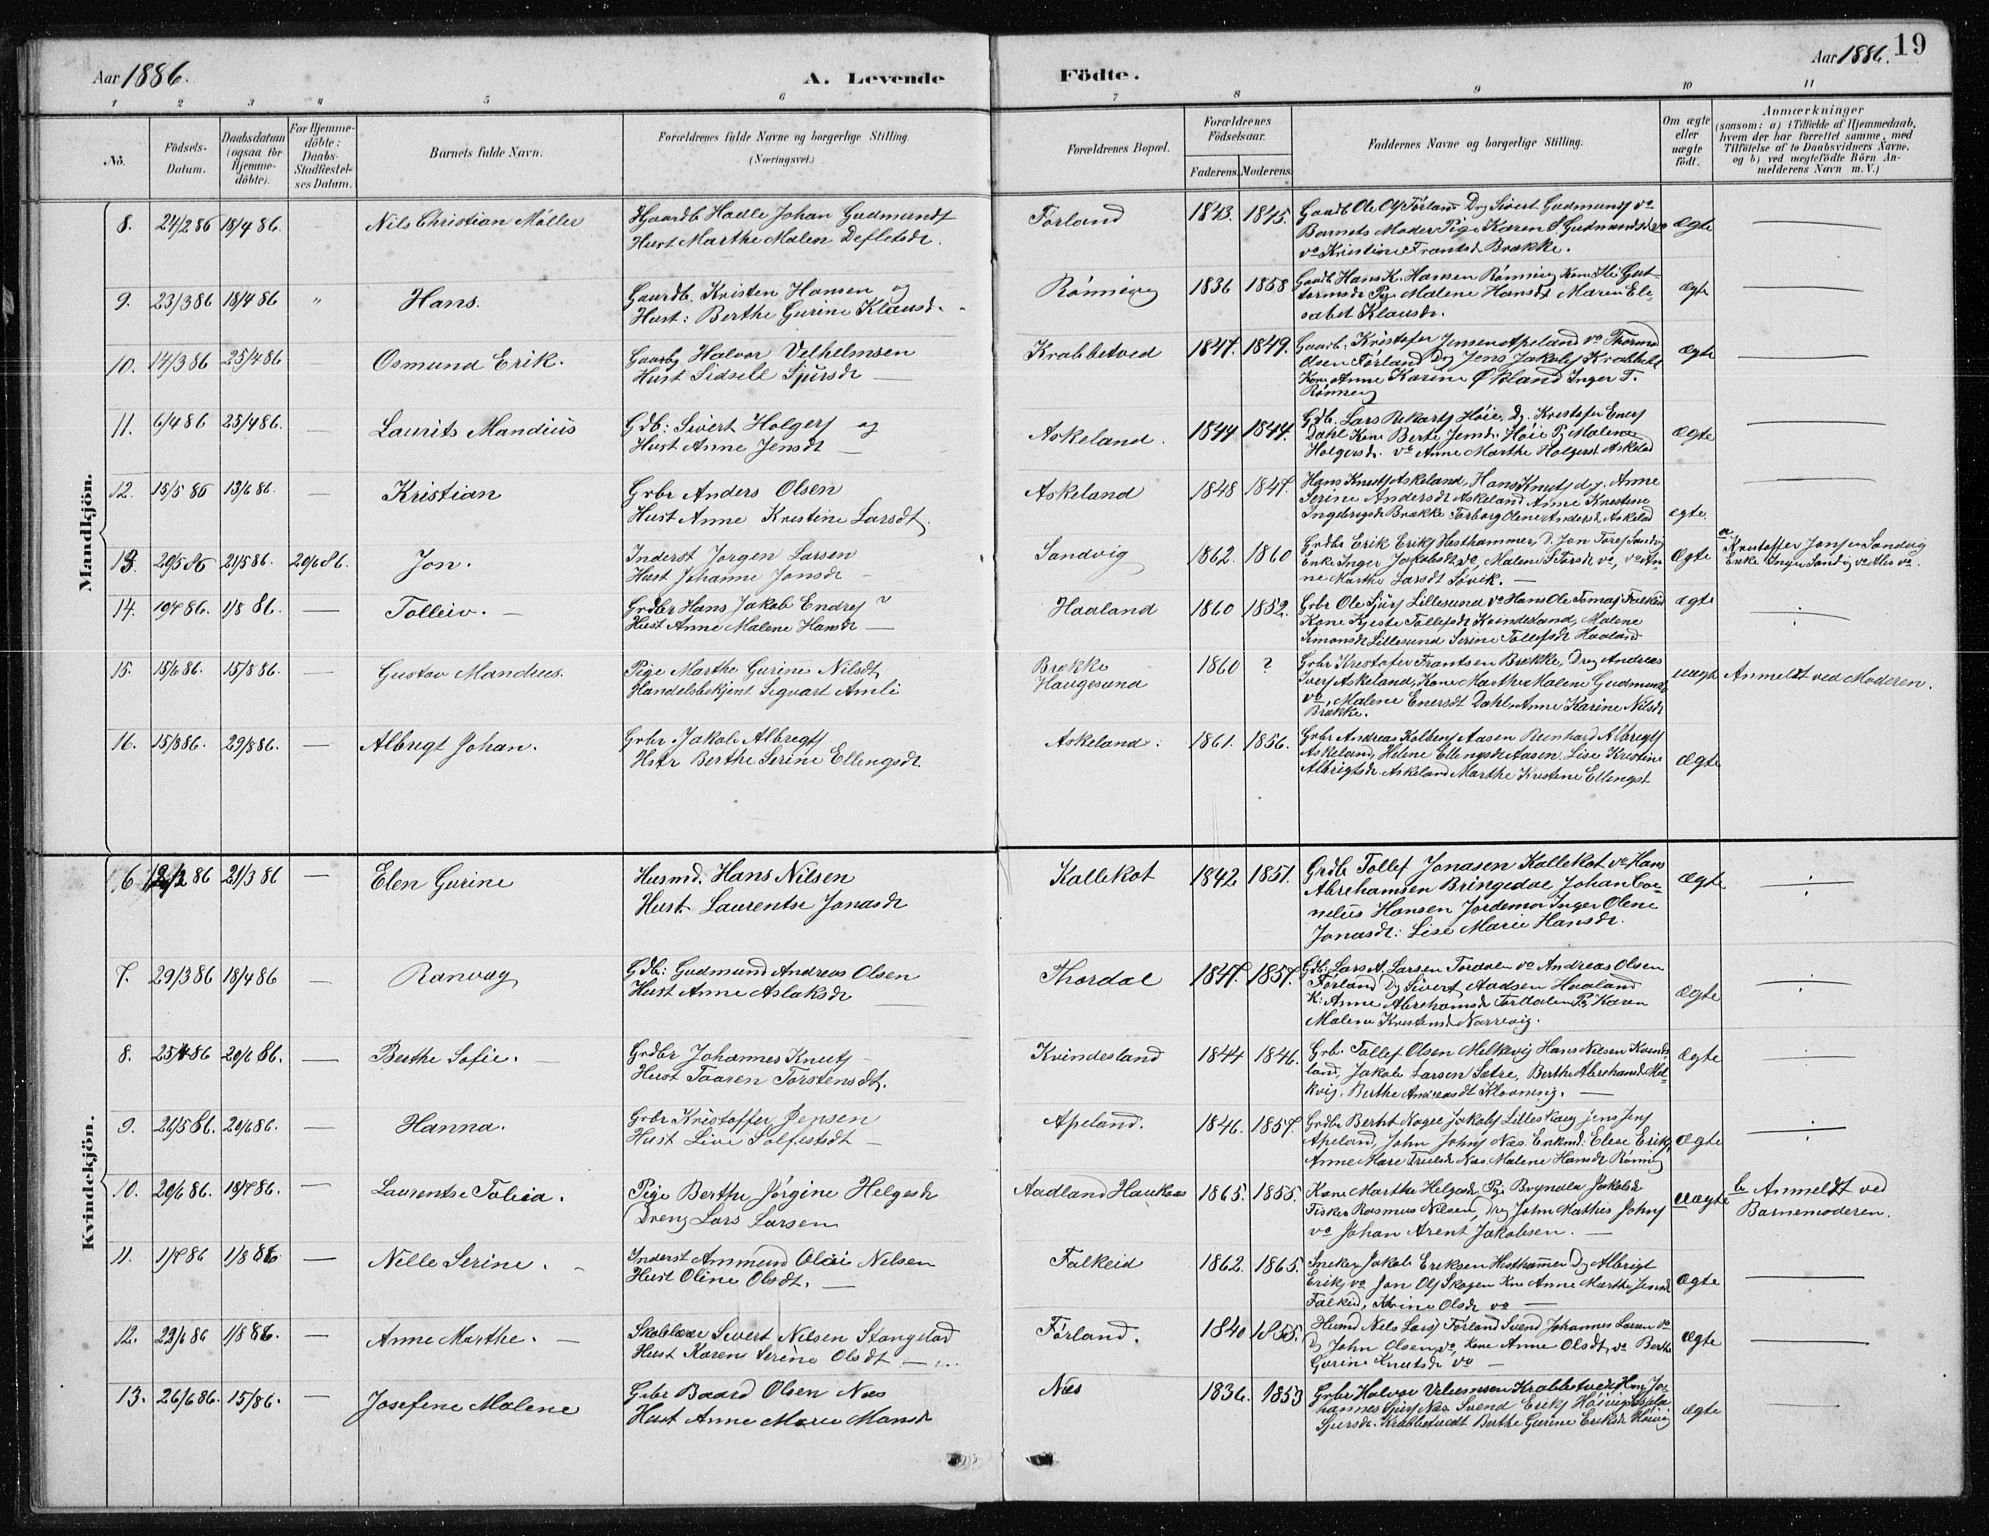 Aar 1886.
A. Levende
Födte.
Aar 1886.
19
1 2 3 4 5 6 7 8 9 10 11
No.
Födsels-Datum.
Daabsdatum (ogsaa for Hjemme-döbte).
For Hjemme-döbte: Daabs-Stadfæstel-ses Datum.
Barnets fulde Navn.
Forældrenes fulde Navne og borgerlige Stilling.
(Næringsvei.)
Forældrenes Bopæl.
Forældrenes Födselsaar.
Faderens. Moderens.
Faddernes Navne og borgerlige Stilling.
Om ægte eller uægte födt.
Anmærkninger
(saasom: a) i Tilfælde af Hjemmedaab,
hvem der har forrettet samme, med
Tilföielse af to Daabsvidners Navne,
og b) ved uægtefödte Börn An-
melderens Navn m. V.)
Mandkjön.
8. 24/2 86 18/4 86. Nils Christian Møller
Gaardb Hadle Johan Gudmunds
Hust Marthe Malen Defletsdr.
Førland 1843. 1845.
Gaardb Ole Ols Førland Dg Sivert Gudmunds vo
Barnets Moder Pige Karen S Gudmundsdr vo
vo Kristine Frantsdr Brække.
ægte
9. 23/3 86 18/4 86 " Hans.
Gaardb. Kristen Hansen og
Hust: Berthe Gurine Klausdr.
Rønnevig 1836 1858
Gaardb Hans K. Hansen Rønnevig Kone Gut-
tormsdr Pg Malene Hansdr Maren Ele-
sabet Klausdr.
ægte
10. 14/3 86 25/4 86 Osmund Erik.
Gaardbr Halvor Velhelmsen
Hust Sidsele Sjursdr
Krabbetved 1847. 1849.
Gaarb. Kristofer Jensen Apeland vo
Olsen Førland Dg Jens Jakobs Krabbetv
Kone Anne Karine Økland Inger T.
Rønnevig
ægte
11. 6/4 86 25/4 86. Laurits Mandius
Gdb: Sivert Holgers og
Hust Anne Jensdr
Askeland. 1844 1844.
Gdb. Lars Rikarts Høie, Dg. Kristofer Eners
Dahl Kone Berte Jensdr. Høie Pg Malene
Holgersdr. vo Anne Marthe Holgersdr Askeland
ægte
12. 15/5 86 13/6 86. Kristian
Grbr Anders Olsen
Hust Anne Kristine Larsdt.
Askeland 1848 1847.
Hans Knuts Askeland, Hans Knuts dg. Anne
Serine Andersdr Askeland Anne Kristene
Ingebrigsdr Brække Torborg Olene Andersdr Askeland
ægte.
13. 20/5 86 21/5 86. 20/6 86. Jon.
Inderst Jørgen Larsen
Hust Johanne Jonsdr
Sandvig 1862. 1860
Grdbr Erik Eriks Hesthammer, D. Jon Tores Sandvig
Enke Inger Jakobsdt vo, Malene Torsdr vo, vo An-
ne Marthe Larsdt Søvik.
Ægte
a Kristoffer Jons Sandvig
Enke Inger Sandvig vo Alis vo.
14. 19/7 86. 1/8 86. Tolleiv.
Grdbr Hans Jakob Endres
Hust Anne Malene Hansdr
Haaland 1860 1852.
Grbr Ole Sjurs Lillesund vo Hans Ole Tomas Falkeid
Kone Kjeste Tollefsdr Kvindesland, Malene
Simonsdr Lillesund Serine Tollefsdr Haaland
ægte
15. 15/6 86. 15/8 86. Gustav Mandius.
Pige Marthe Gurine Nilsdt,
Handelsbekjent Sigvart Amli
Brække
Haugesund
1860 ?
Grbr Kristofer Frantsen Brække, Dreng Andreas
Ivers Askeland, Kone Marthe Malene Gudmunds
vo, Malene Enersdt Dahl, Anne Karine Nilsdr
Brække.
uægte Anmeldt ved Moderen.
16. 15/8 86. 29/8 86. Albregt Johan.
Grbr. Jakob Albregts
Hstr Berthe Serine Ellengsdr
Askeland. 1861. 1856.
Grbr Andreas Kolbens Aasen Reinhard Albregts
Askeland, Helene Ellengsdr Aasen, Lise Kristine
Albrigtsdr Askeland Marthe Kristene Ellengst
ægte
Kvindekjön.
6 12/2 86 21/3 86 Elen Gurine
Husmd. Hans Nilsen
Hust. Laurentse Jonasdr
Kallekot 1842 1851.
Grdb Tollef Jonasen Kallekot vo Hans
Abrehamsen Bringedal Johan Cor-
nelius Hansen Jordemor Inger Olene
Jonasdr: Lise Marie Hansdr.
ægte
7. 29/3 86 18/4 86 Ranvog
Gdb: Gudmund Andreas Olsen
Hust Anne Aslaksdr
Thordal 1847. 1857.
Gdb: Lars A. Larsen Tordalen vo Andreas Olsen
Førland Dg Sivert Aadsen Haaland
K: Anne Abrehamsdr Tordalen Pg Karen
Malene Kristensd Narrevig.
Ægte
8. 25/4 86 20/6 86. Berthe Sofie.
Grdbr Johannes Knuts
Hust Taaren Torstensdt.
Kvindesland 1844 1846.
Grb. Tollef Olsen Melkevig Hans Nilsen Kvinds-
land, Jakob Larsen Sætre, Berthe Abrehamsdr Mel-
kvig. Berthe Andreasdt Kloovning.
Ægte
9. 26/5 86. 20/6 86. Hanna.
Grbr Kristoffer Jensen
Hust Live Solfestdt
Apeland. 1846. 1857.
Grdbr Bertht Nagel Jakobs Lilleskaug Jens Jens
Apeland, John Johns Næs. Enkmd: Elese Eriks,
Anne Mare Truelsdr Næs. Malene Hansdr Rønnevig
ægte
10. 20/6 86. 18/7 86. Laurentse Tolina.
Pige Berthe Jørgine Helgesdr
Dreng Lars Larsen
Aadland Haukaas 1865. 1855.
Kone Marthe Helgesdr Pge Bryndla Jakobsdr
Fisker Rasmus Nilsen, Dreg John Mathis Johns
vo Johan Arent Jakobsen.
uægte
b Anmeldt ved
Barnemoderen.
11. 1/7 86 1/8 86 Nelle Serine.
Inderst Ammund Olai Nilsen
Hust Oline Olsdt.
Falkeid 1862. 1865.
Sneker Jakob Eriksen Hesthammer Dg Albrigt
Eriks vo Jon Ols Skogen Kne Anne Marthe Jensdr
Falkeid, Karine Olsdr vo
Ægte
12. 22/6 86 1/8 86. Anne Marthe.
Skolelærer Sivert Nilsen Stangeland
Hust Karen Serine Olsdt
Førland. 1840 1855.
Husmd Nils Lars Førland Svend Johannes Larsen vo
Dg John Olsen vo, Kone Anne Olsdt, vo Berthe
Gurine Knutsdr vo
Ægte
13. 26/6 86. 15/86. Josefene Malene
Grbr Baard Olsen Næs
Hust Anne Marie Mansdr
Næs 1836. 1853
Grbr Halvor Velumsen Krabbetved Hm. Jo-
hannes Sjurs Næs Svend Eriks Høivig
Sjursdr. Krabbetvedt Berthe Gurine Eriksdr Høivig
ægte